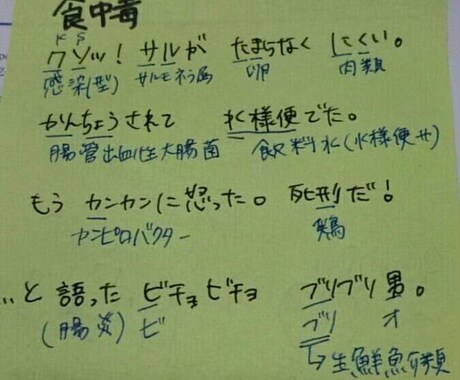 食中毒
K S
クソッ! サルが たまらなく にくい。
感染(型) サルモネラ属 卵 肉類
かんちょうされて 水様便でた。
腸管出血性大腸菌 飲料水(水様便サ)
もう カンカンに怒った。 死刑だ!
カンピロバクター 鶏
...と 語った ビチョビチョ ブリブリ男。
(腸炎) ビ ブリ オ
→生鮮魚介類